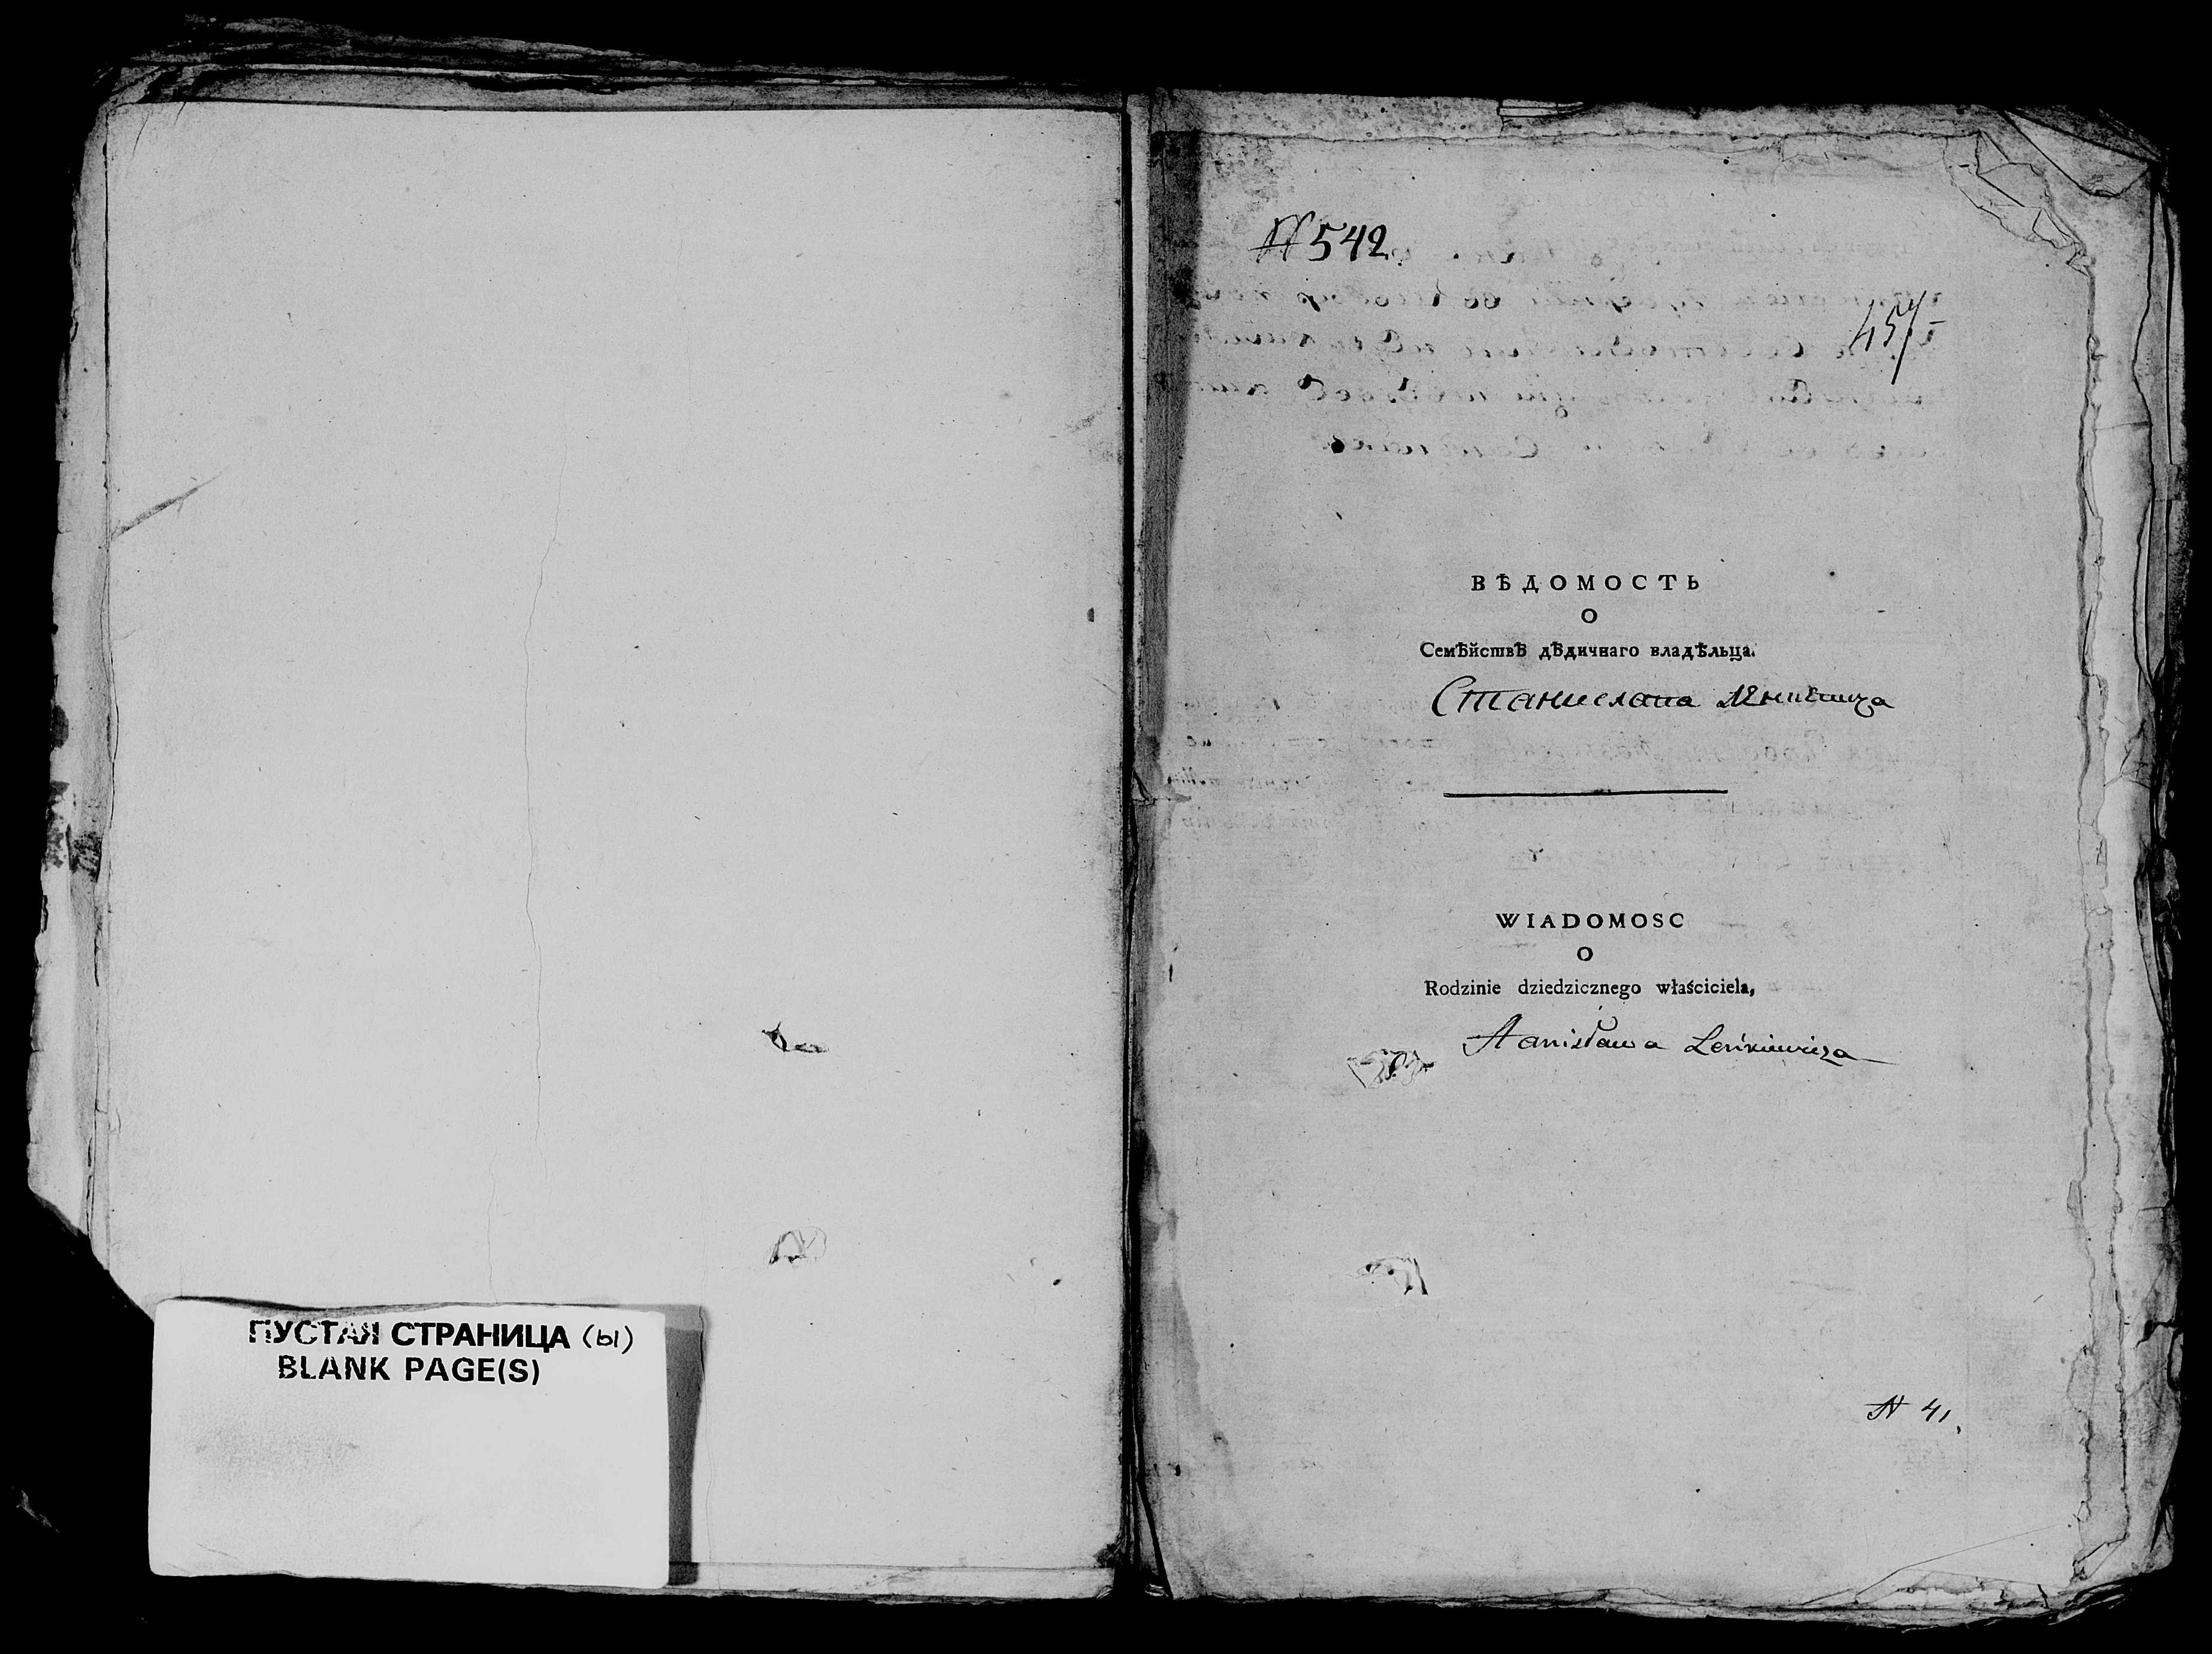 ПУСТАЯ СТРАНИЦА (ы)
BLANK PAGE(S)
N 542
457
ВѢДОМОСТЬ
О
Семѣйствѣ дѣдичнаго владѣльца.
Станислава
WIADOMOSC
O
Rodzinie dziedzicznego właściciela,
Stanisława Leńkiewicza
N 41,